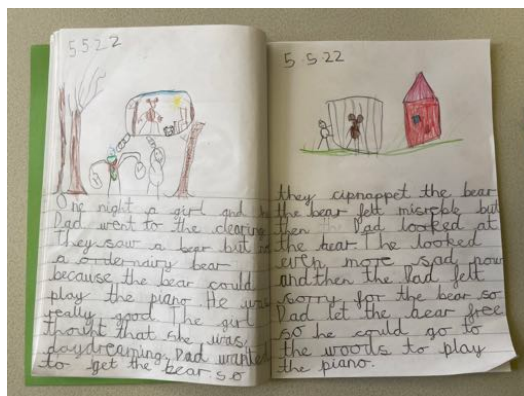 5 5 2 2
One night a girl and h
Dad went to the clearing
They saw a bear but no
a ordernairy bear
because the bear could
play the piano. He was
really good. The girl
thought that she was
daydreaming. Dad wanted
to get the bear. so
5.5.22
they cipnappet the bear
the bear felt misreble but
then the Dad looked at
the bear. The looked
even more sad now
and then the Dad felt
sorry for the bear so
Dad let the bear free
so he could go to
the woods to play
the piano.